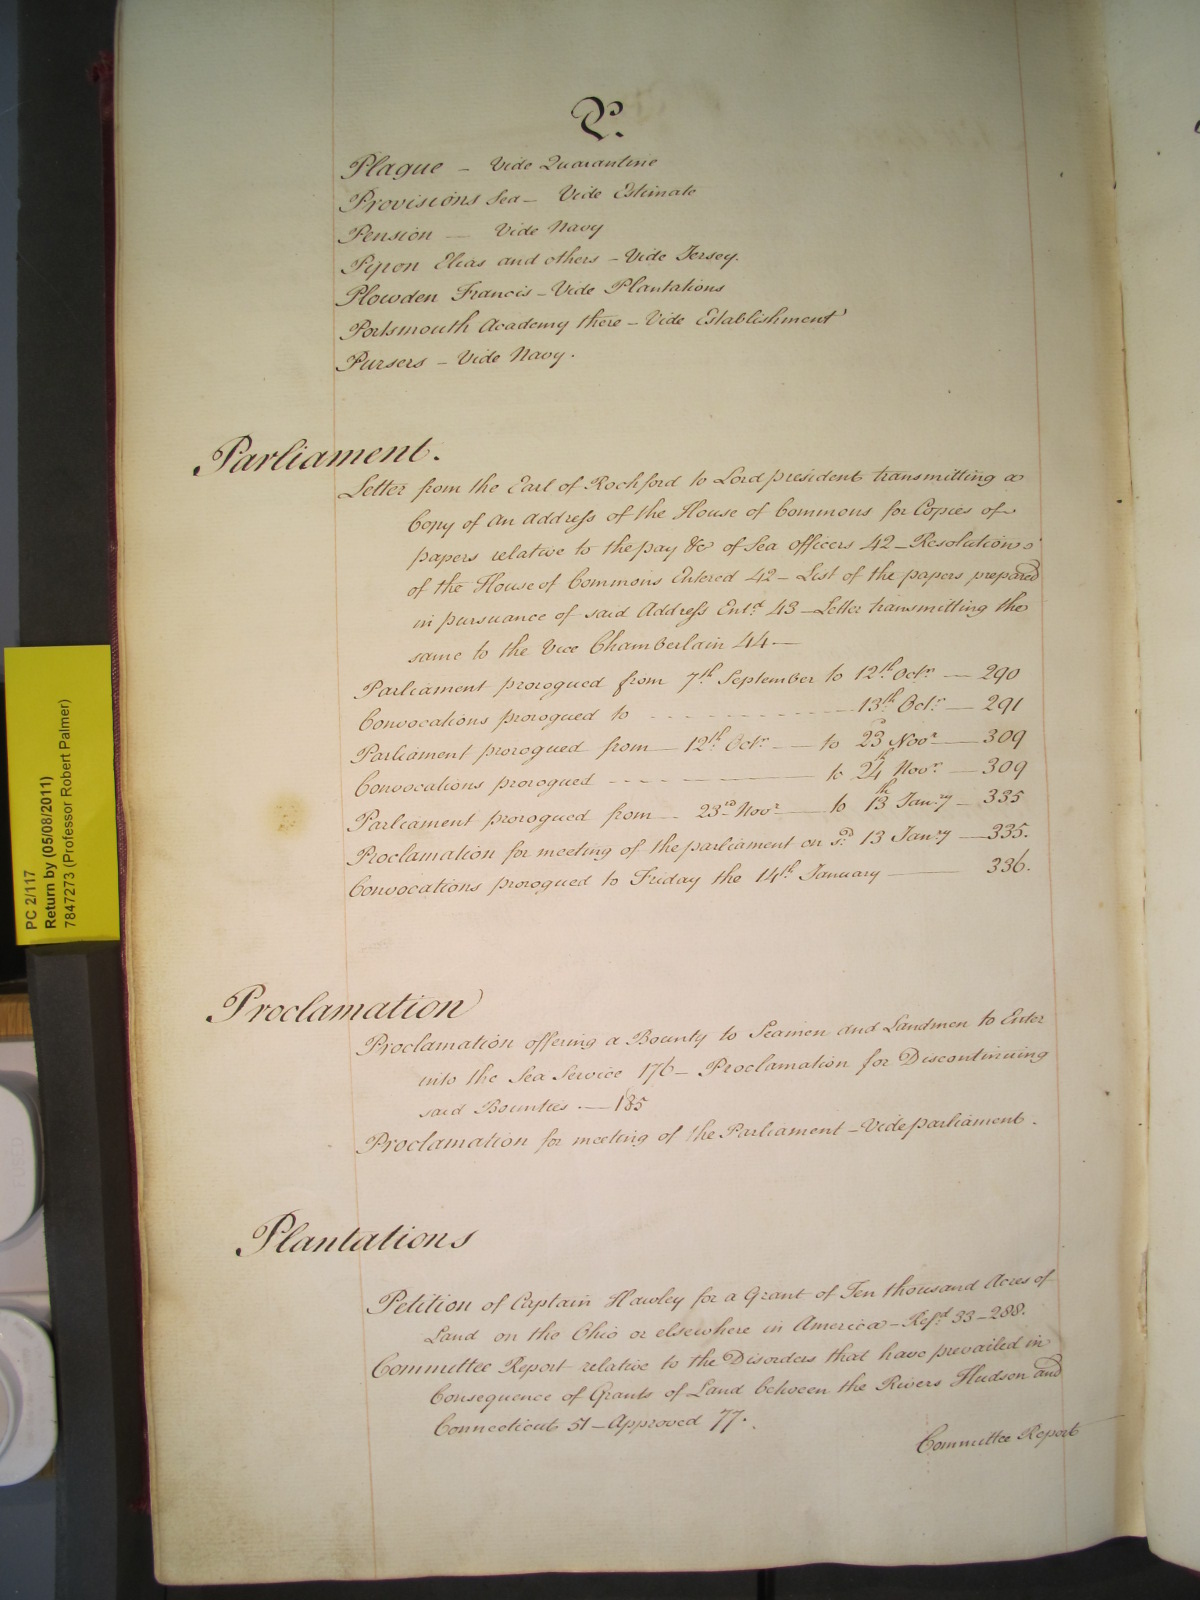 P.
Plague – Vide Quarantine
Provisions Sea – Vide Estimate
Pension — Vide Navy
Pipon Elias and others – Vide Jersey.
Plowden Francis – Vide Plantations
Portsmouth Academy there – Vide Establishment
Pursers – Vide Navy.
Parliament.
Letter from the Earl of Rochford to Lord president transmitting a
Copy of an Address of the House of Commons for Copies of
papers relative to the pay &c of Sea officers 42 – Resolutions
of the House of Commons Entered 42 – List of the papers prepared
in pursuance of said Address Entd. 43 – Letter transmitting the
same to the Vice Chamberlain 44 —
Parliament prorogued from 7th September to 12th Octr. — 290
Convocations prorogued to - - - - - - - 13th Octr. — 291
Parliament prorogued from — 12th Octr. — to 23d Novr — 309
Convocations prorogued - - - — to 24th Novr. — 309
Parliament prorogued from — 23rd Novr — to 13th Janry — 335
Proclamation for meeting of the parliament on sd. 13 Janry — 335.
Convocations prorogued to Friday the 14th January — 336.
Proclamation
Proclamation offering a Bounty to Seamen and Landmen to Enter
into the Sea Service 176 – Proclamation for Discontinuing
said Bounties — 185
Proclamation for meeting of the Parliament – Vide parliament.
Plantations
Petition of Captain Hawley for a Grant of Ten thousand Acres of
Land on the Ohio or elsewhere in America – Refd. 33 – 288.
Committee Report relative to the Disorders that have prevailed in
Consequence of Grants of Land between the Rivers Hudson and
Connecticut 51 – Approved 77.
Committee Report
PC 2/117
Return by (05/08/2011)
7847273 (Professor Robert Palmer)